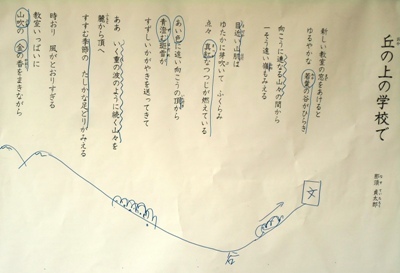 丘の上の学校で
那須 貞太郎
新しい教室の窓をあけると
ゆるやかな 若葉の谷がひらき
向こうに連なる山々の間から
一そう遠い嶺もみえる
目近い山肌は
ゆたかに芽吹いて ふくらみ
点々 真紅なつつじが燃えている
あい色に遠い向こうの頂から
青澄む斑雪が
すずしいかがやきを送ってきて
ああ いく重の波のように続く山々を
麓から頂へ
すすむ季節の たしかな足どりがみえる
時おり 風がとおりすぎる
教室いっぱいに
山吹の 金の香をまきながら
文